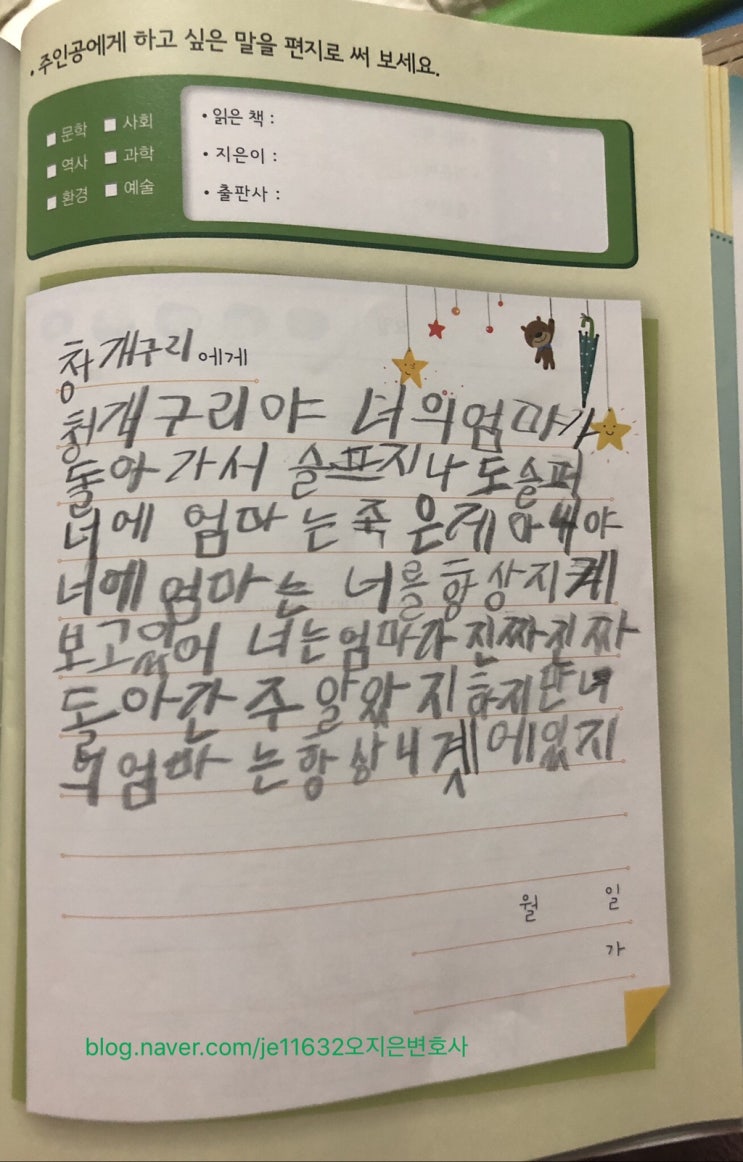 • 주인공에게 하고 싶은 말을 편지로 써 보세요.
문학 사회
역사 과학
환경 예술
• 읽은 책 :
• 지은이 :
• 출판사 :
창개구리 에게
청개구리야 너의엄마가
돌아가서 슬프지나도슬퍼
너에 엄마는죽은게
너에엄마는 너를항상지켸
보고있어 너는엄마가진짜진짜
돌아간주알았지하지만너
의엄마는항상내곗에있지
월 일
가
blog.naver.com/je11632오지은변호사